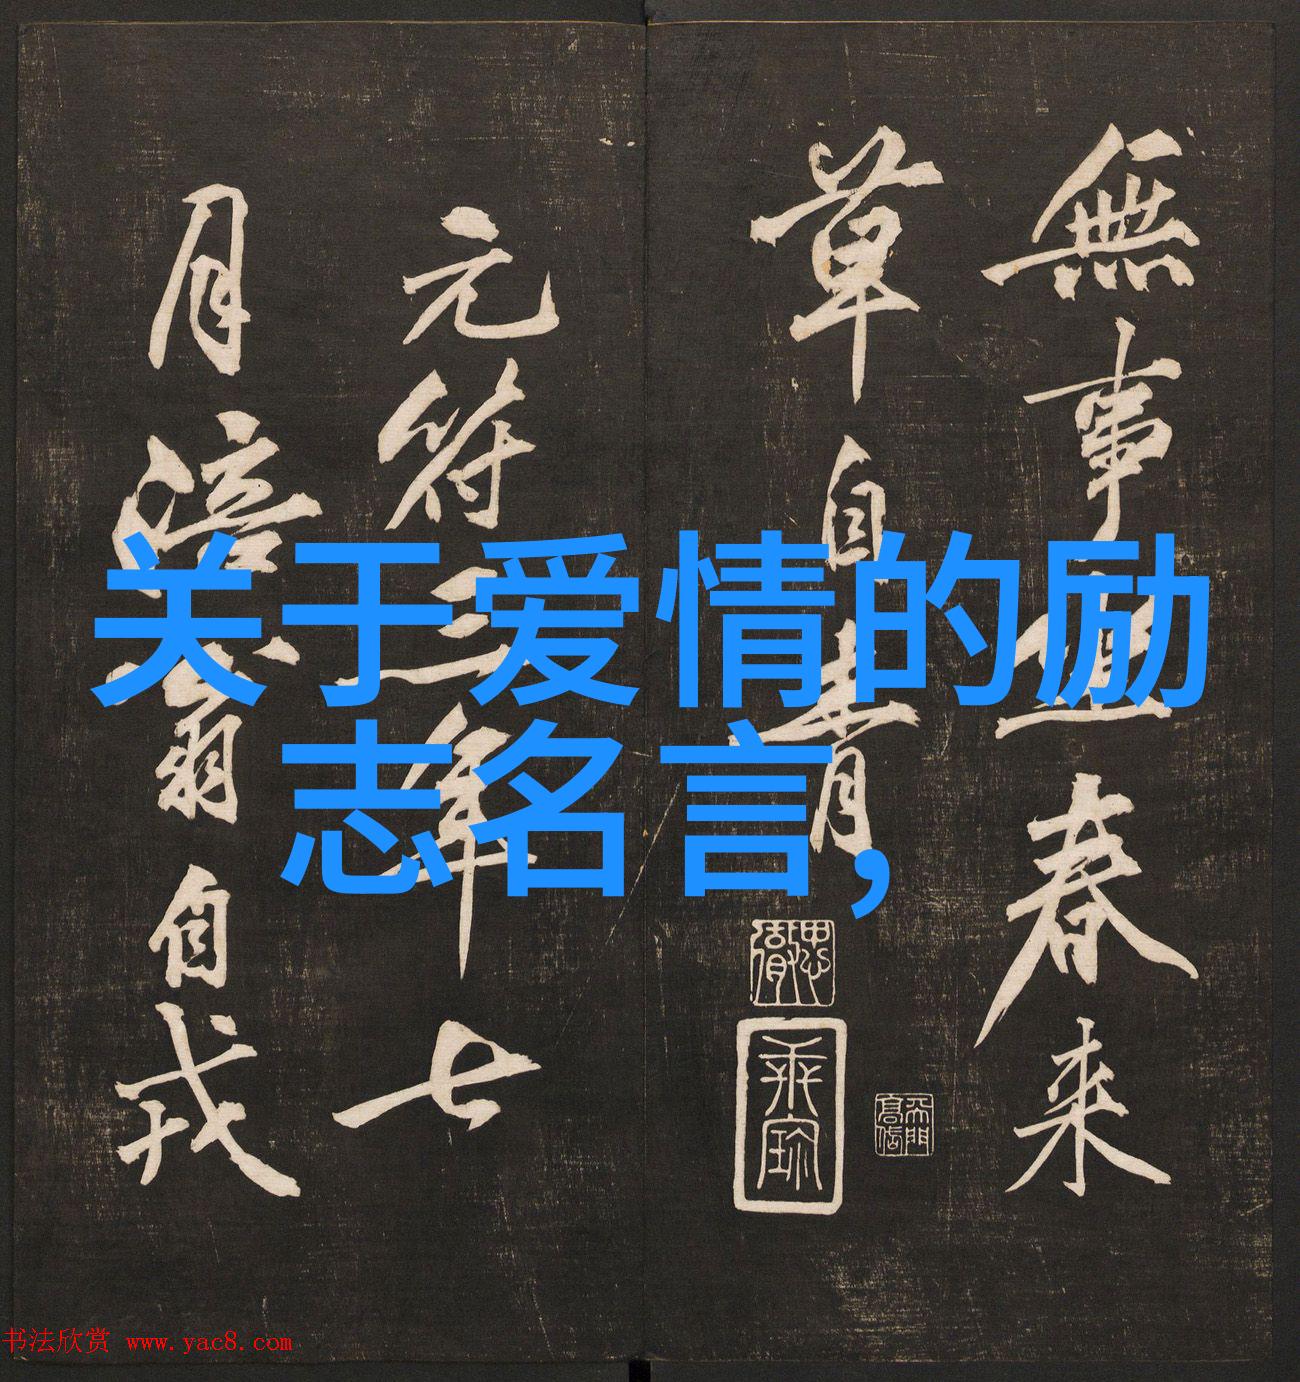 無事無春来
草自青
元符三年七
月涪翁自戎
关于爱情的励
志名言，
书法欣赏 www.yac8.com